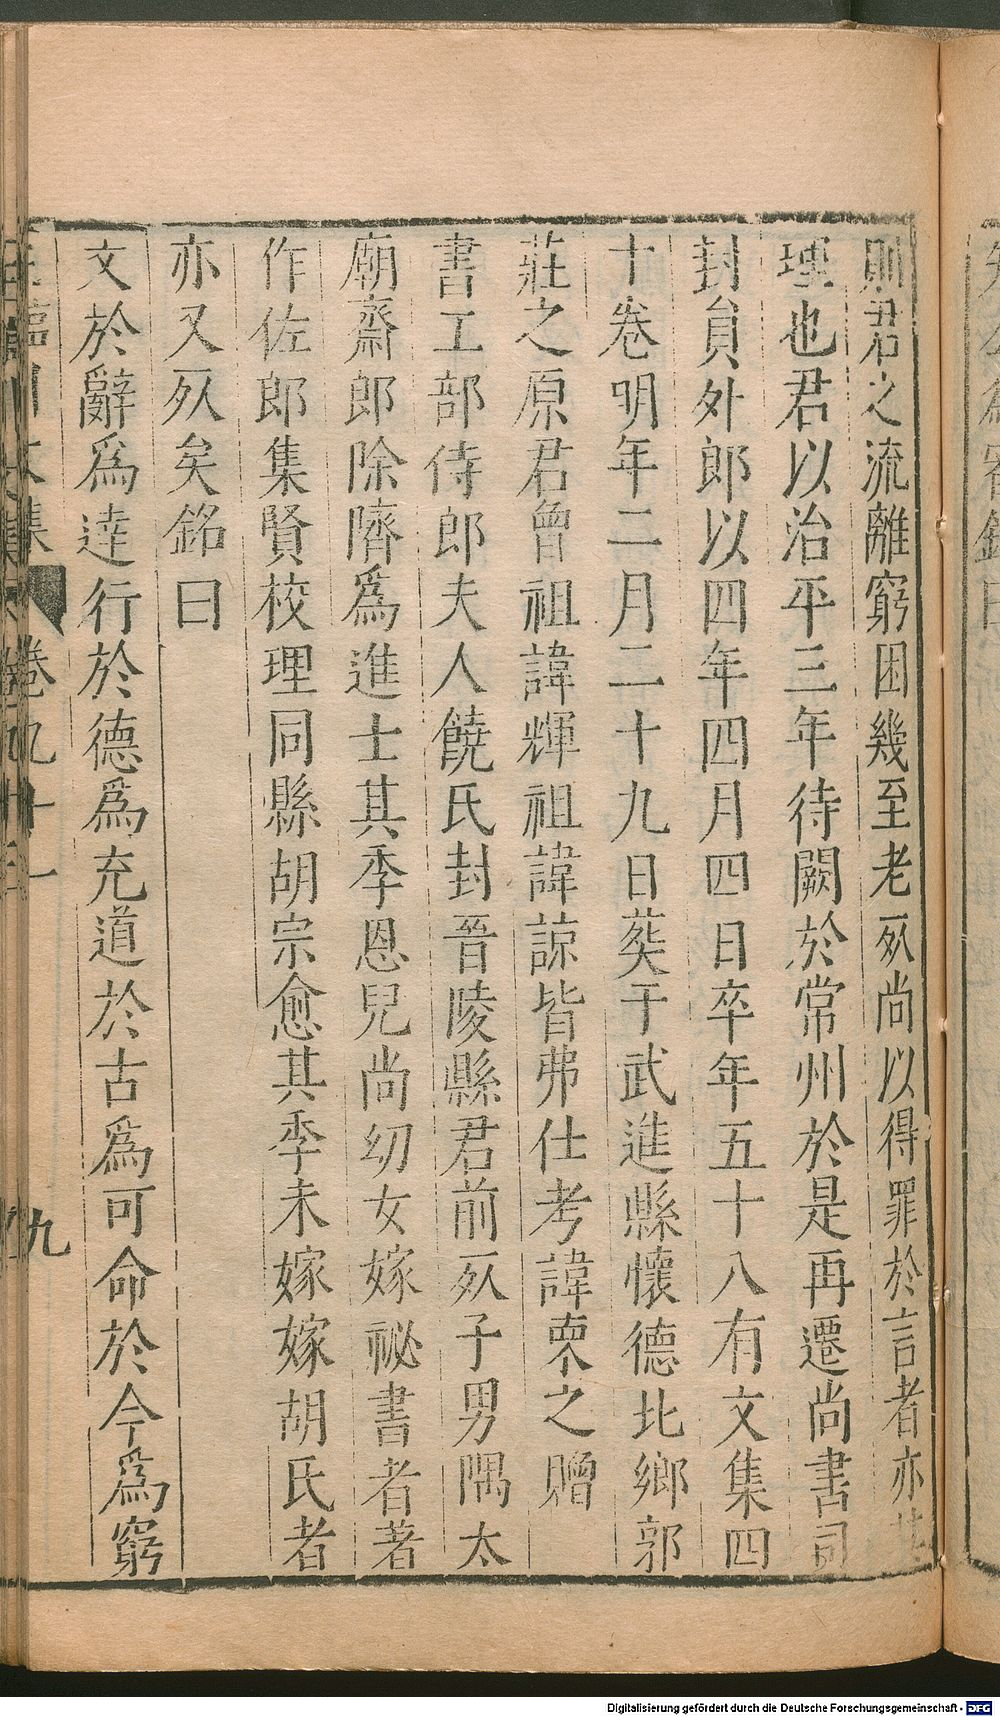 則君之流離窮困幾至老死尚以得罪於言者亦其
理也君以治平三年待闕於常州於是再遷尚書司
封員外郎以四年四月四日卒年五十八有文集四
十卷明年二月二十九日葬于武進縣懷德北鄉郭
莊之原君曾祖諱輝祖諱諒皆弗仕考諱柬之贈
書工部侍郎夫人饒氏封晉陵縣君前死子男隅太
廟齋郎除隮為進士其季恩兒尚幼女嫁祕書者著
作佐郎集賢校理同縣胡宗愈其季未嫁嫁胡氏者
亦又死矣銘曰
文於辭爲達行於德爲充道於古爲可命於今爲窮
卷九十一
九
Digitalisierung gefördert durch die Deutsche Forschungsgemeinschaft - DFG